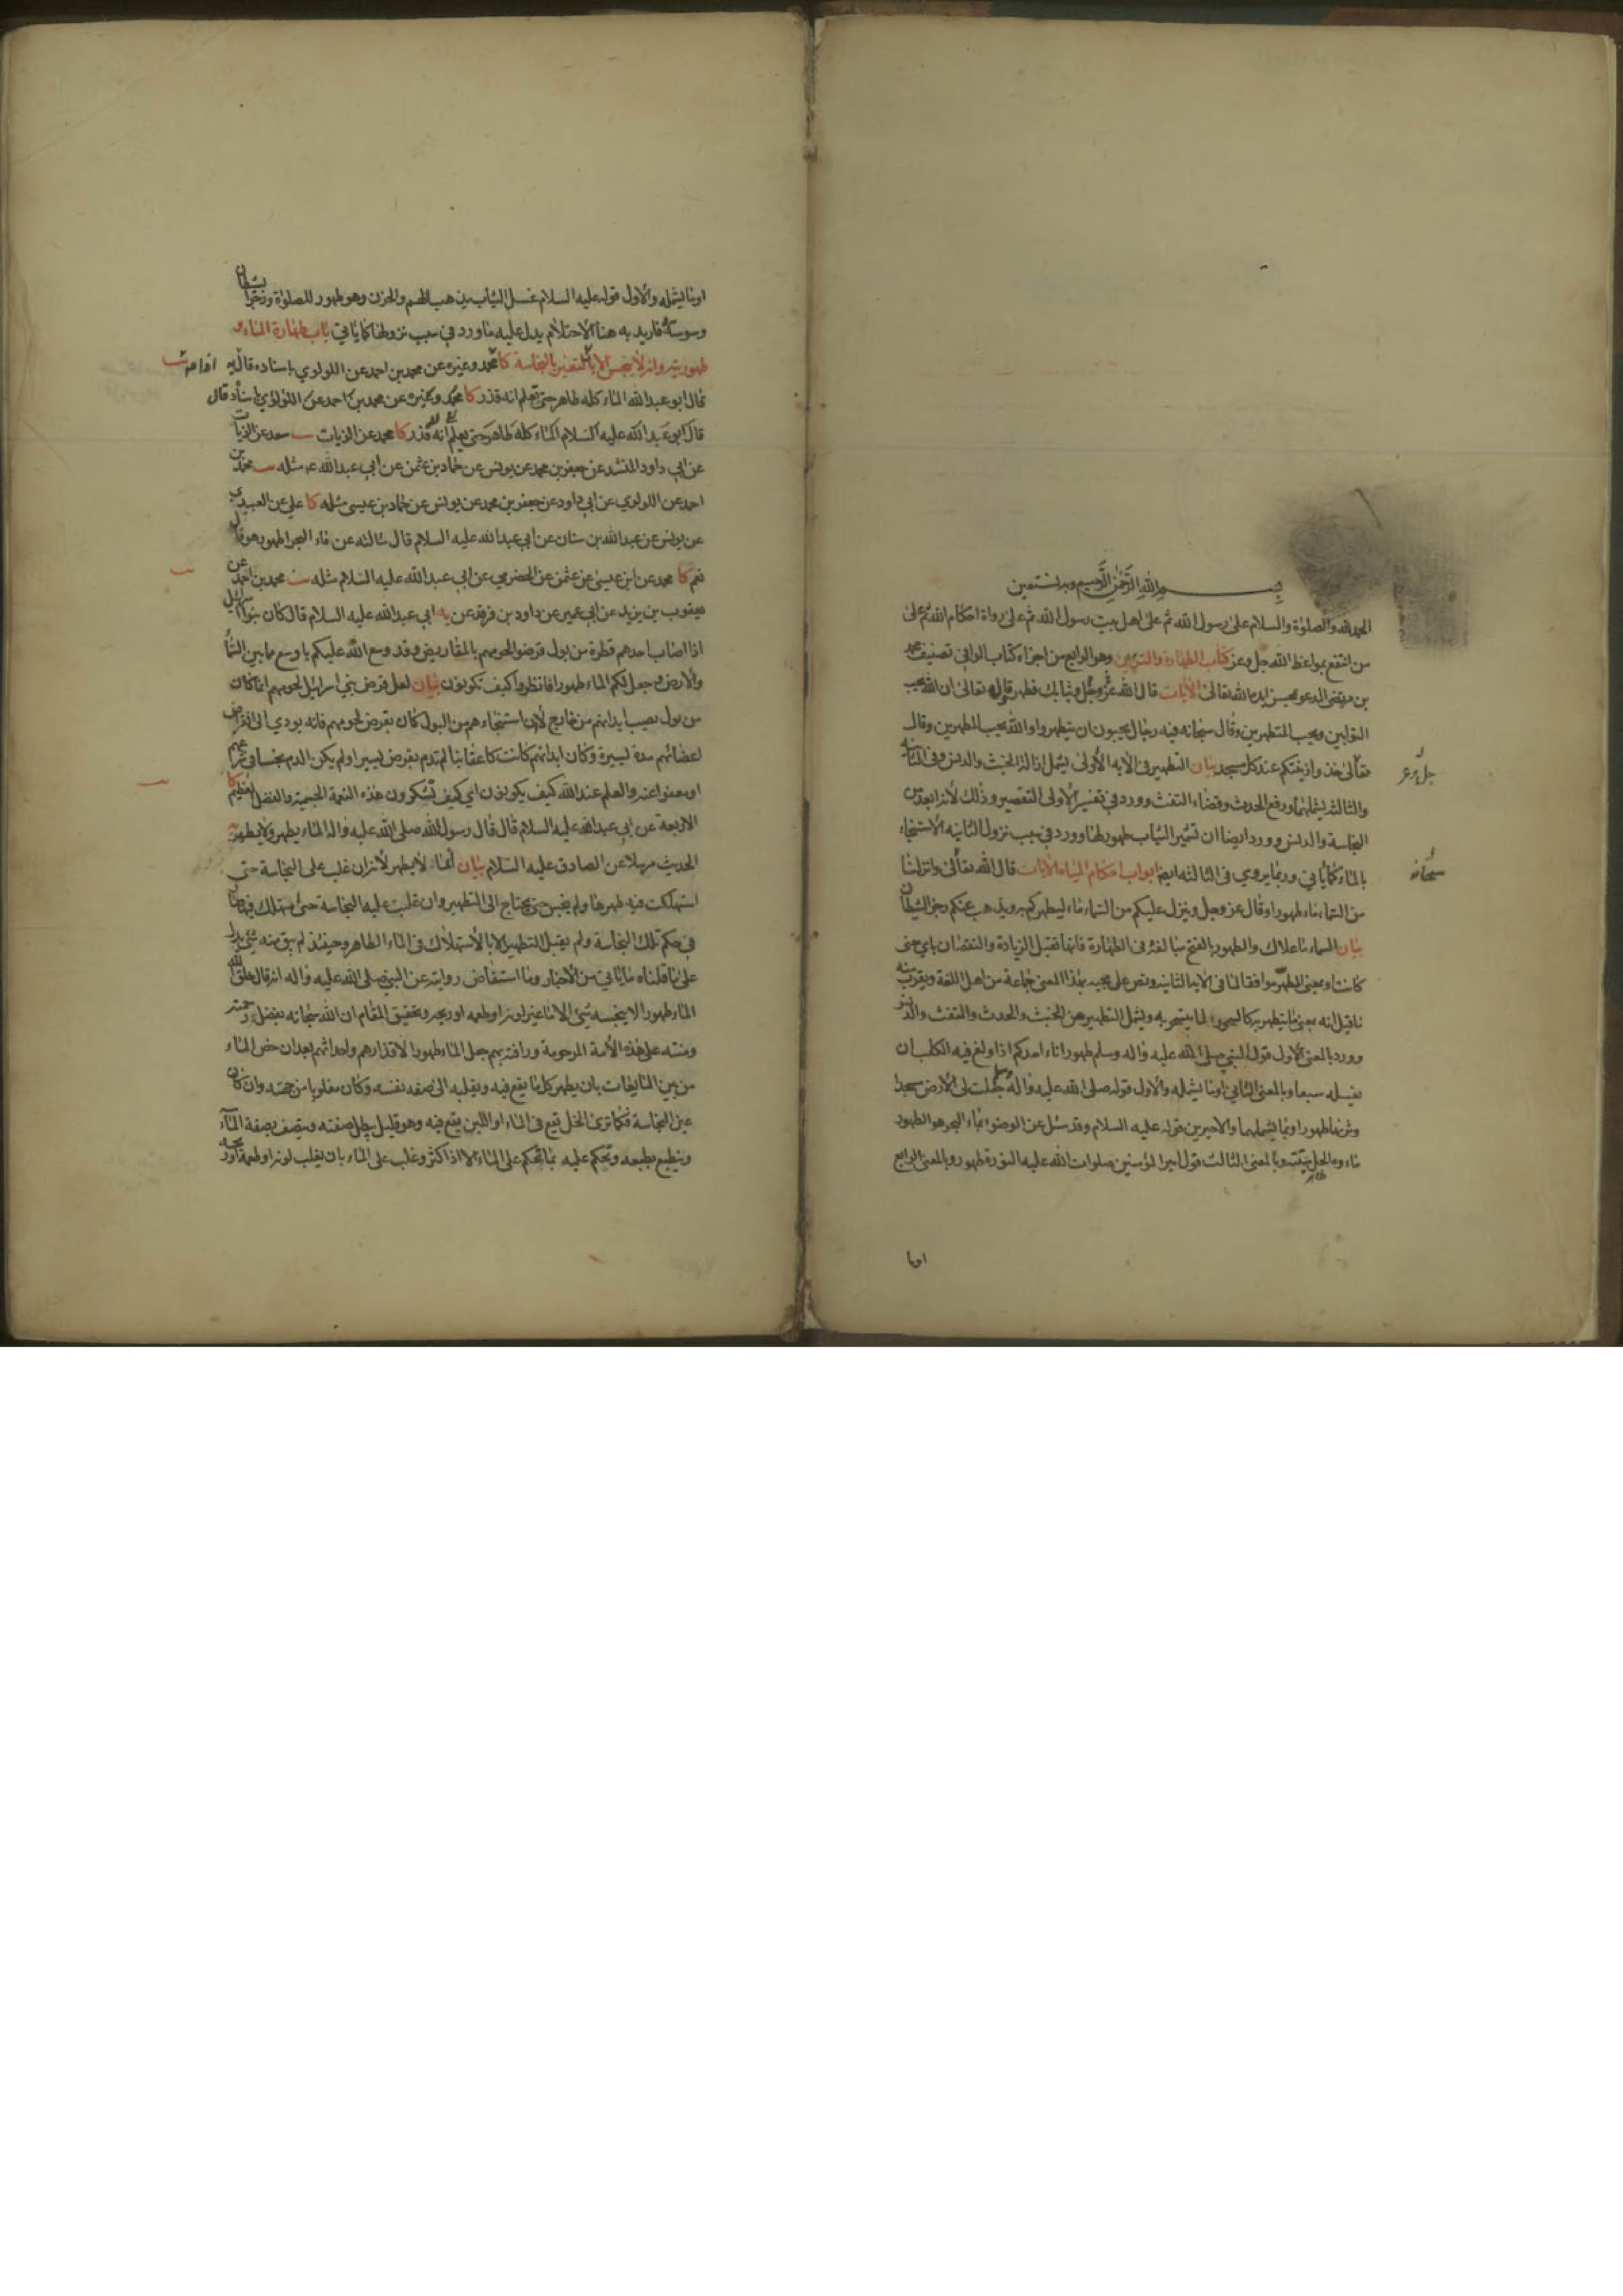 بسم الله الرحمن الرحيم وبه نستعين
الحمد لله والصلوة والسلام على رسول الله ثم على اهل بيت رسول الله ثم على رواة احكام الله ثم على
من انتفع بمواعظ الله جل وعز كتاب الطهارة والتزيين وهو الرابع من اجزاء كتاب الوافي تصنيف محمد
بن مرتضى المدعو بمحسن ايده الله تعالى الآيات قال الله عز وجل وثيابك فطهر وقال تعالى ان الله يحب
التوابين ويحب المتطهرين وقال سبحانه فيه رجال يحبون ان يتطهروا والله يحب المطهرين وقال
تعالى خذوا زينتكم عند كل مسجد بيان التطهير في الآية الأولى يشمل ازالة الخبث والدنس وفي الثانية
جل وعز
والثالثة يشملهما ورفع الحدث وقضاء التفث وورد في تفسير الأولى التقصير وذلك لأنه ابعد من
النجاسة والدنس وورد ايضا ان تشمير الثياب طهور لها وورد في سبب نزول الثانيه الاستنجاء
بالماء كما يأتي وربما يروى في الثالثه ايضا ابواب احكام المياه الآيات قال الله تعالى وانزلنا
سبحانه
من السماء ماء طهورا وقال عز وجل وينزل عليكم من السماء ماء ليطهركم به ويذهب عنكم رجز الشيطان
بيان السماء ما علاك والطهور بالفتح مبالغة في الطهارة فانها تقبل الزيادة والنقصان باي معنى
كانت او بمعنى المطهر موافقا لما في الآية الثانية ونص على مجيئه بهذا المعنى جماعة من اهل اللغة ويقرب منه
ما قيل انه بمعنى ما يتطهر به كالسحور لما يتسحر به ويشمل التطهير من الخبث والحدث والتفث والدنس
وورد بالمعنى الأول قول النبي صلى الله عليه واله وسلم طهور اناء احدكم اذا ولغ فيه الكلب ان
يغسله سبعا وبالمعنى الثاني او ما يشمله والأول قوله صلى الله عليه واله وسلم جعلت لي الأرض مسجدا
وترابها طهورا وبما يشملهما والاخيرين قوله عليه السلام وقد سئل عن الوضوء بماء البحر هو الطهور
ماءه الحل ميتته وبالمعنى الثالث قول امير المؤمنين صلوات الله عليه النورة طهور وبالمعنى الرابع
او ما
او ما يشمله والأول قوله عليه السلام غسل الثياب يذهب الهم والحزن وهو طهور للصلوة ورجز الشيطان
وسوسته فاريد به هنا الاحتلام يدل عليه ما ورد في سبب نزولها كما ياتي باب طهارة الماء و
طهوريته وانه لا ينجس الا بالتغير بالنجاسة كا محمد وغيره عن محمد بن احمد عن اللولوي باسناده قال
قال ابو عبد الله الماء كله طاهر حتى تعلم انه قذر كا محمد وغيره عن محمد بن احمد عن اللؤلؤي باسناده قال
قال ابو عبد الله عليه السلام الماء كله طاهر حتى يعلم انه قذر كا محمد عن الزيات يب سعد عن الزيات
عن ابي داود المنشد عن جعفر بن محمد عن يونس عن حماد بن عثمن عن ابي عبد الله ع مثله يب محمد بن
احمد عن اللولوي عن ابي داود عن جعفر بن محمد عن يونس عن حماد بن عيسى مثله كا علي عن العبيدي
عن يونس عن عبد الله بن سنان عن ابي عبد الله عليه السلام قال سالته عن ماء البحر اطهور هو قال
نعم كا محمد عن ابن عيسى عن عثمن عن الحضرمي عن ابي عبد الله عليه السلام مثله يب محمد بن احمد عن
يعقوب بن يزيد عن ابي عمير عن داود بن فرقد عن ابي عبد الله عليه السلام قال كان بنو اسرائيل
اذا اصاب احدهم قطرة من بول قرضوا لحومهم بالمقاريض وقد وسع الله عليكم باوسع ما بين السماء
والأرض وجعل لكم الماء طهورا فانظروا كيف تكونون بيان لعل قرض بني اسرائيل لحومهم انما كان
من بول يصيب ابدانهم من خارج لأن استنجاءهم من البول كان بقرض لحومهم فانه يودي الى انقراض
اعضائهم مدة يسيرة وكان ابدانهم كانت كاعقابنا لم تدم بقرض يسير او لم يكن الدم نجسا في شرعهم
او معفوا عنه والعلم عند الله كيف يكونون اي كيف تشكرون هذه النعمة الجسيمة والفضل العظيم كا
الاربعة عن ابي عبد الله عليه السلام قال قال رسول الله صلى الله عليه واله الماء يطهر ولا يطهر يه
الحديث مرسلا عن الصادق عليه السلام بيان انما لا يطهر لأنه ان غلب على النجاسة حتى
استهلكت فيه طهرها ولم ينجس حتى يحتاج الى التطهير وان غلب عليه النجاسة حتى استهلك فيها صار
في حكم تلك النجاسة ولم يقبل التطهير الا بالاستهلاك في الماء الطاهر وحينئذ لم يبق منه شيء يدل
على ما قلناه ما ياتي من الأخبار وما استفاض روايته عن النبي صلى الله عليه واله انه قال خلق الله
الماء طهورا لا ينجسه شيء الا ما غير لونه او طعمه او ريحه وتحقيق المقام ان الله سبحانه بفضل رحمته
ومنته على هذه الأمة المرحومة ورافته بهم جعل الماء طهورا لأقذارهم واحداثهم بعد ان خص الماء
من بين المايعات بان يطهر كل ما يقع فيه ويقلبه الى صفه نفسه وكان مغلوبا من جهته وان كان
عين النجاسة فكما ترى الخل تقع في الماء او اللبن يقع فيه وهو قليل يبطل صفته ويتصف بصفة الماء
وينطبع بطبعه ويحكم عليه بما يحكم على الماء الا اذا كثر وغلب على الماء بان يغلب لونه او طعمه او ريحه